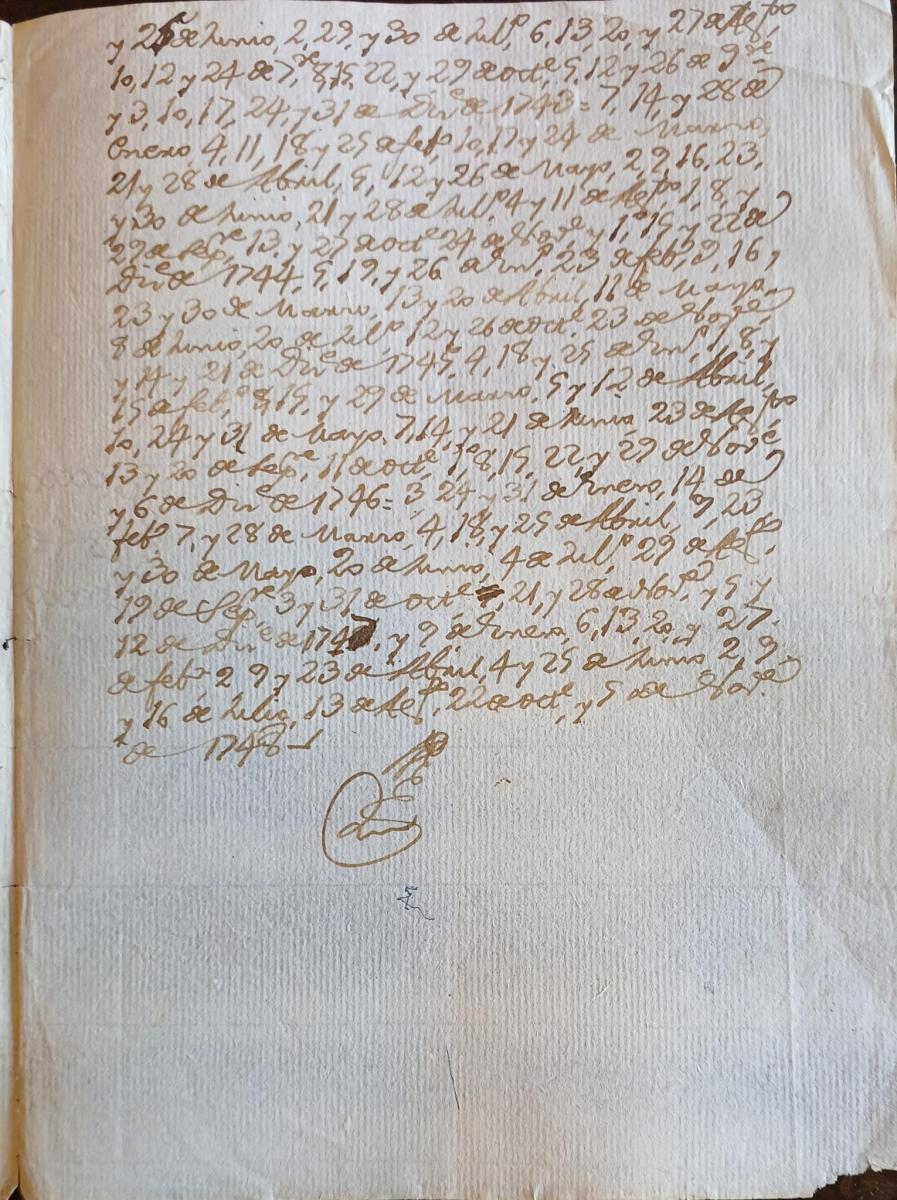 y 25 de Junio, 2, 29, y 30 de Jul.º, 6, 13, 20, y 27 de Ag.to
10, 12 y 24 de 7.re, 8, 15, 22, y 29 de oct.e, 5, 12 y 26 de 9.re
y 3, 10, 17, 24, y 31 de Diz.e de 1743 = 7, 14, y 28 de
Enero, 4, 11, 18 y 25 de feb.º, 10, 17 y 24 de Marzo,
21 y 28 de Abril, 5, 12 y 26 de Mayo, 2, 9, 16, 23,
y 30 de Junio, 21 y 28 de Jul.º, 4 y 11 de Ag.to, 1, 8, y
29 de Sep.re, 13, y 27 de oct.e 24 de Nov.e, y 1, 15, y 22 de
Diz.e de 1744, 5, 19, y 26 de En.º, 23 de feb.º, 9, 16,
23 y 30 de Marzo, 13 y 20 de Abril, 11 de Mayo,
8 de Junio, 20 de Jul.º, 12 y 26 de oct.e 23 de Nov.e
y 14 y 21 de Diz.e de 1745, 4, 18 y 25 de En.º, 1, 8, y
15 de feb.º, 8, 15, y 29 de Marzo, 5 y 12 de Abril,
10, 24 y 31 de Mayo, 7, 14, y 21 de Junio, 23 de Ag.to
13 y 20 de Sep.re, 11 de oct.e, 1º, 8, 15, 22, y 29 de Nov.e
y 6 de Diz.e de 1746 = 3, 24 y 31 de Enero, 14 de
feb.º 7, y 28 de Marzo, 4, 18, y 25 de Abril, 9, 23
y 30 de Mayo, 20 de Junio, 4 de Jul.º, 29 de Ag.to,
19 de Sep.re, 3 y 31 de oct.e, 21, y 28 de Nov.e, y 5 y
12 de Diz.e de 1747, y 9 de Enero, 6, 13, 20, y 27
de feb.º 2 9 y 23 de Abril, 4 y 25 de Junio 2 9
y 16 de Julio, 13 de Ag.to, 22 de oct.e, y 5 de Nov.e
de 1748